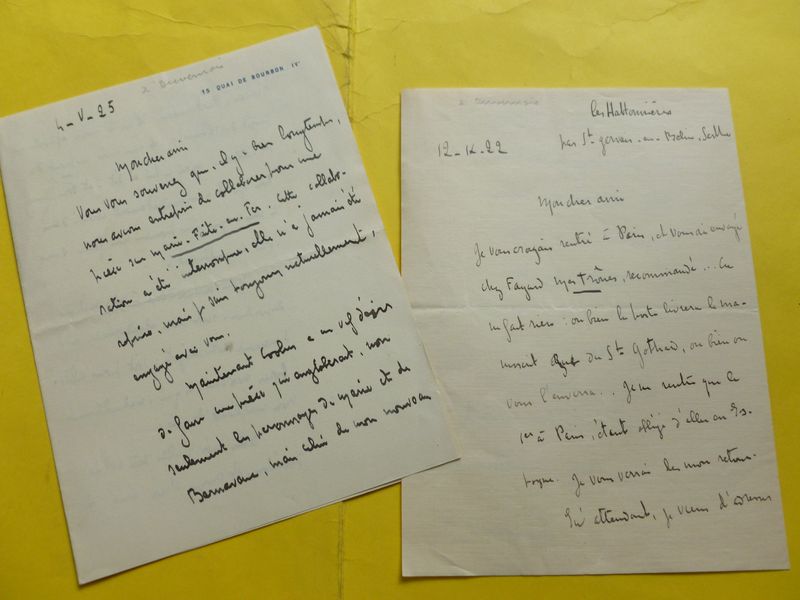 à Duvernois
15 QUAI DE BOURBON IVe
4-V-25
Mon cher ami
Vous vous souvenez que, il y a bien longtemps,
nous avons entrepris de collaborer pour une
pièce sur Marie-Fite-au-Fer. Cette collabo-
ration a été interrompue, elle n'a jamais été
reprise, mais je suis toujours naturellement,
engagé avec vous.
Maintenant Coolus a un vif désir
de faire une pièce qui engloberait, non
seulement les personnages de Marie et de
Bernavaux, mais celui de mon nouveau
à Duvernois
les Hattonnières
12-IX-22 par St-Gervais-en-Belin, Sarthe
Mon cher ami
Je vous croyais rentré à Paris, et vous ai envoyé
chez Fayard mes Trônes, recommandé... Ça
ne fait rien : ou bien la poste livrera le ma-
nuscrit rue du St Gothard, ou bien on
vous l'enverra... Je ne rentre que le
1er à Paris, étant obligé d'aller en Es-
pagne. Je vous verrai dès mon retour.
En attendant, je viens d'adresser